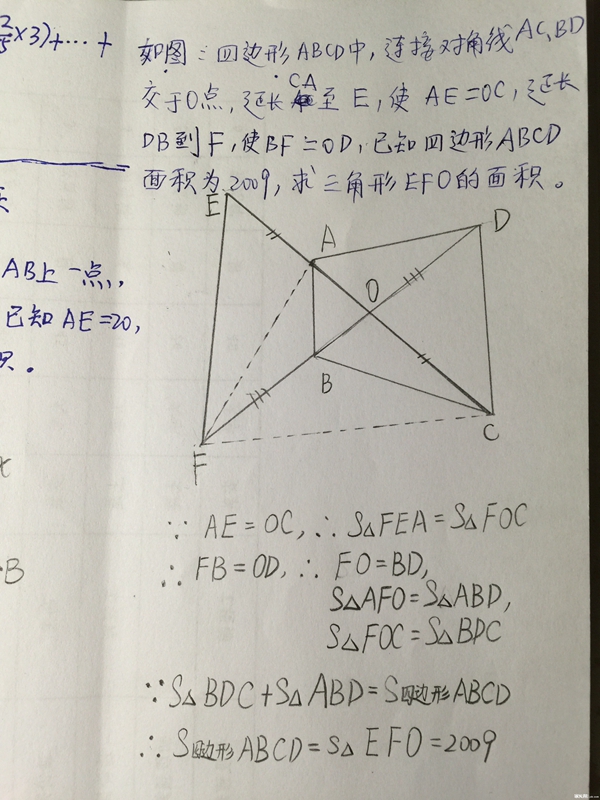 2/5×3)+…+
AB上一点,
已知AE=20,
积。
B
如图:四边形ABCD中,连接对角线AC,BD
交于O点,延长CA至E,使AE=OC,延长
DB到F,使BF=OD,已知四边形ABCD
面积为2009,求三角形EFO的面积。
E
A
D
O
B
F
C
∵ AE=OC,∴S△FEA=S△FOC
∴ FB=OD,∴ FO=BD,
S△AFO=S△ABD,
S△FOC=S△BDC
∵S△BDC+S△ABD=S四边形ABCD
∴S四边形ABCD=S△EFO=2009